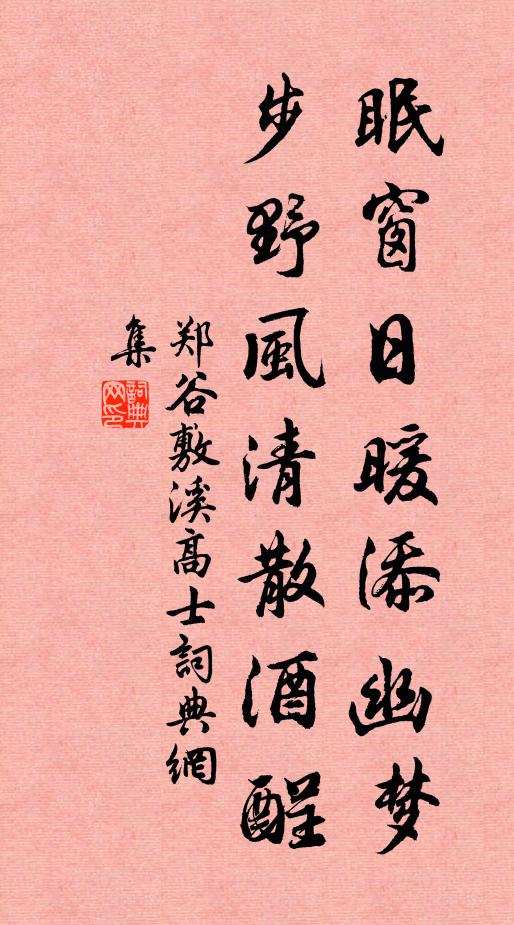 眠窗日暖添幽梦
步野風清散酒醒
郑谷敷溪高士詞典網
集
詞典網印